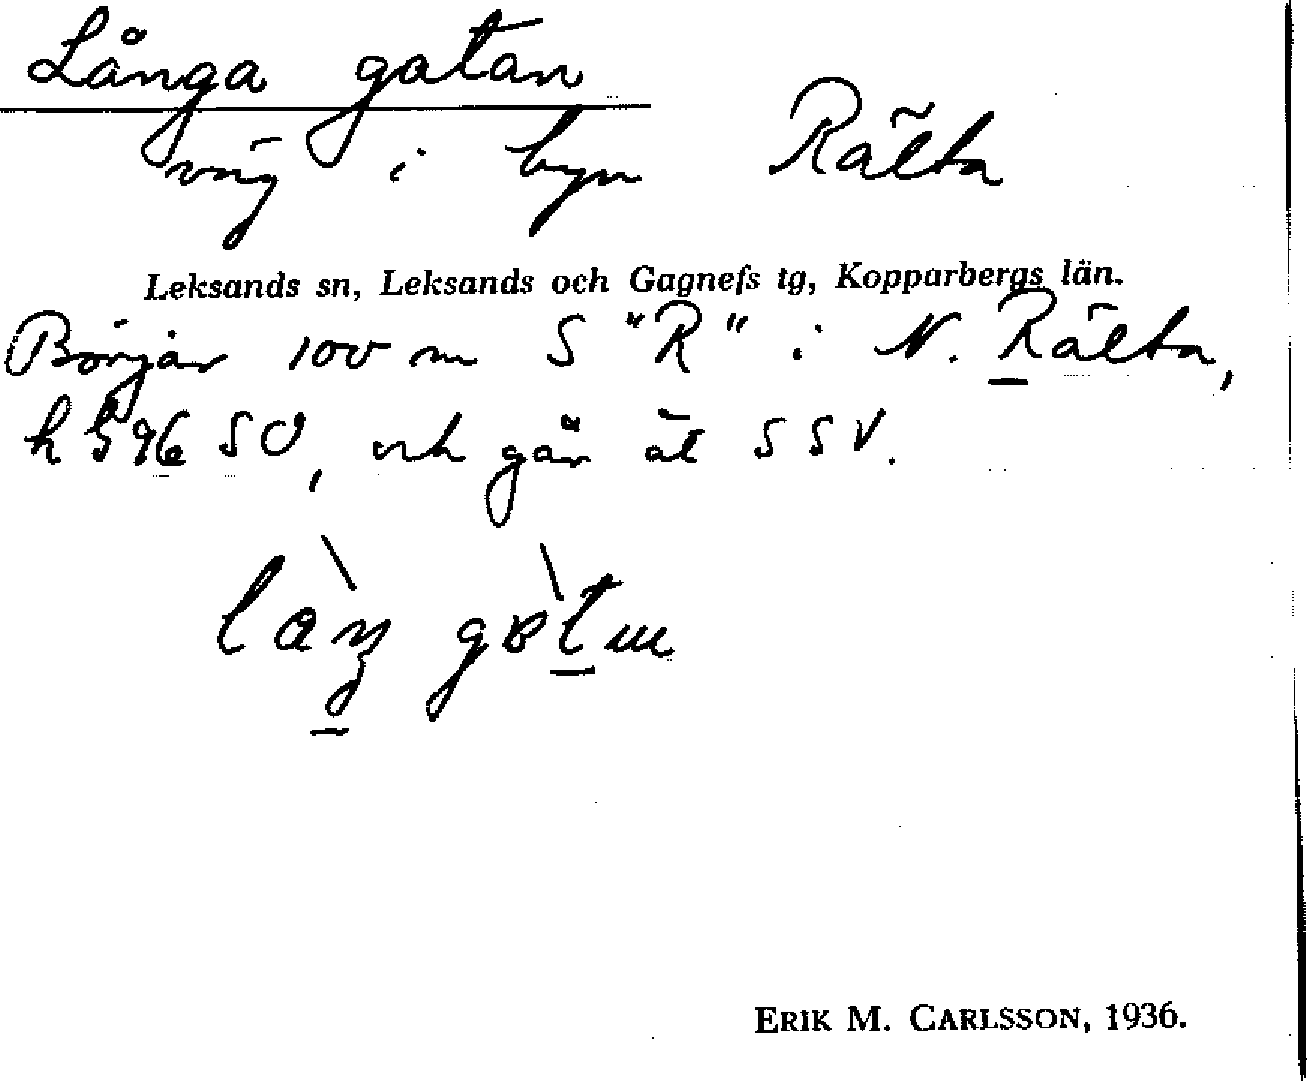 Långa gatan
väg i byn Rälta
Leksands sn, Leksands och Gagnefs tg, Kopparbergs län.
Börjar 100 m S "R" i N. Rälta,
k 96 SO, och går åt SSV.
ERIK M. CARLSSON, 1936.